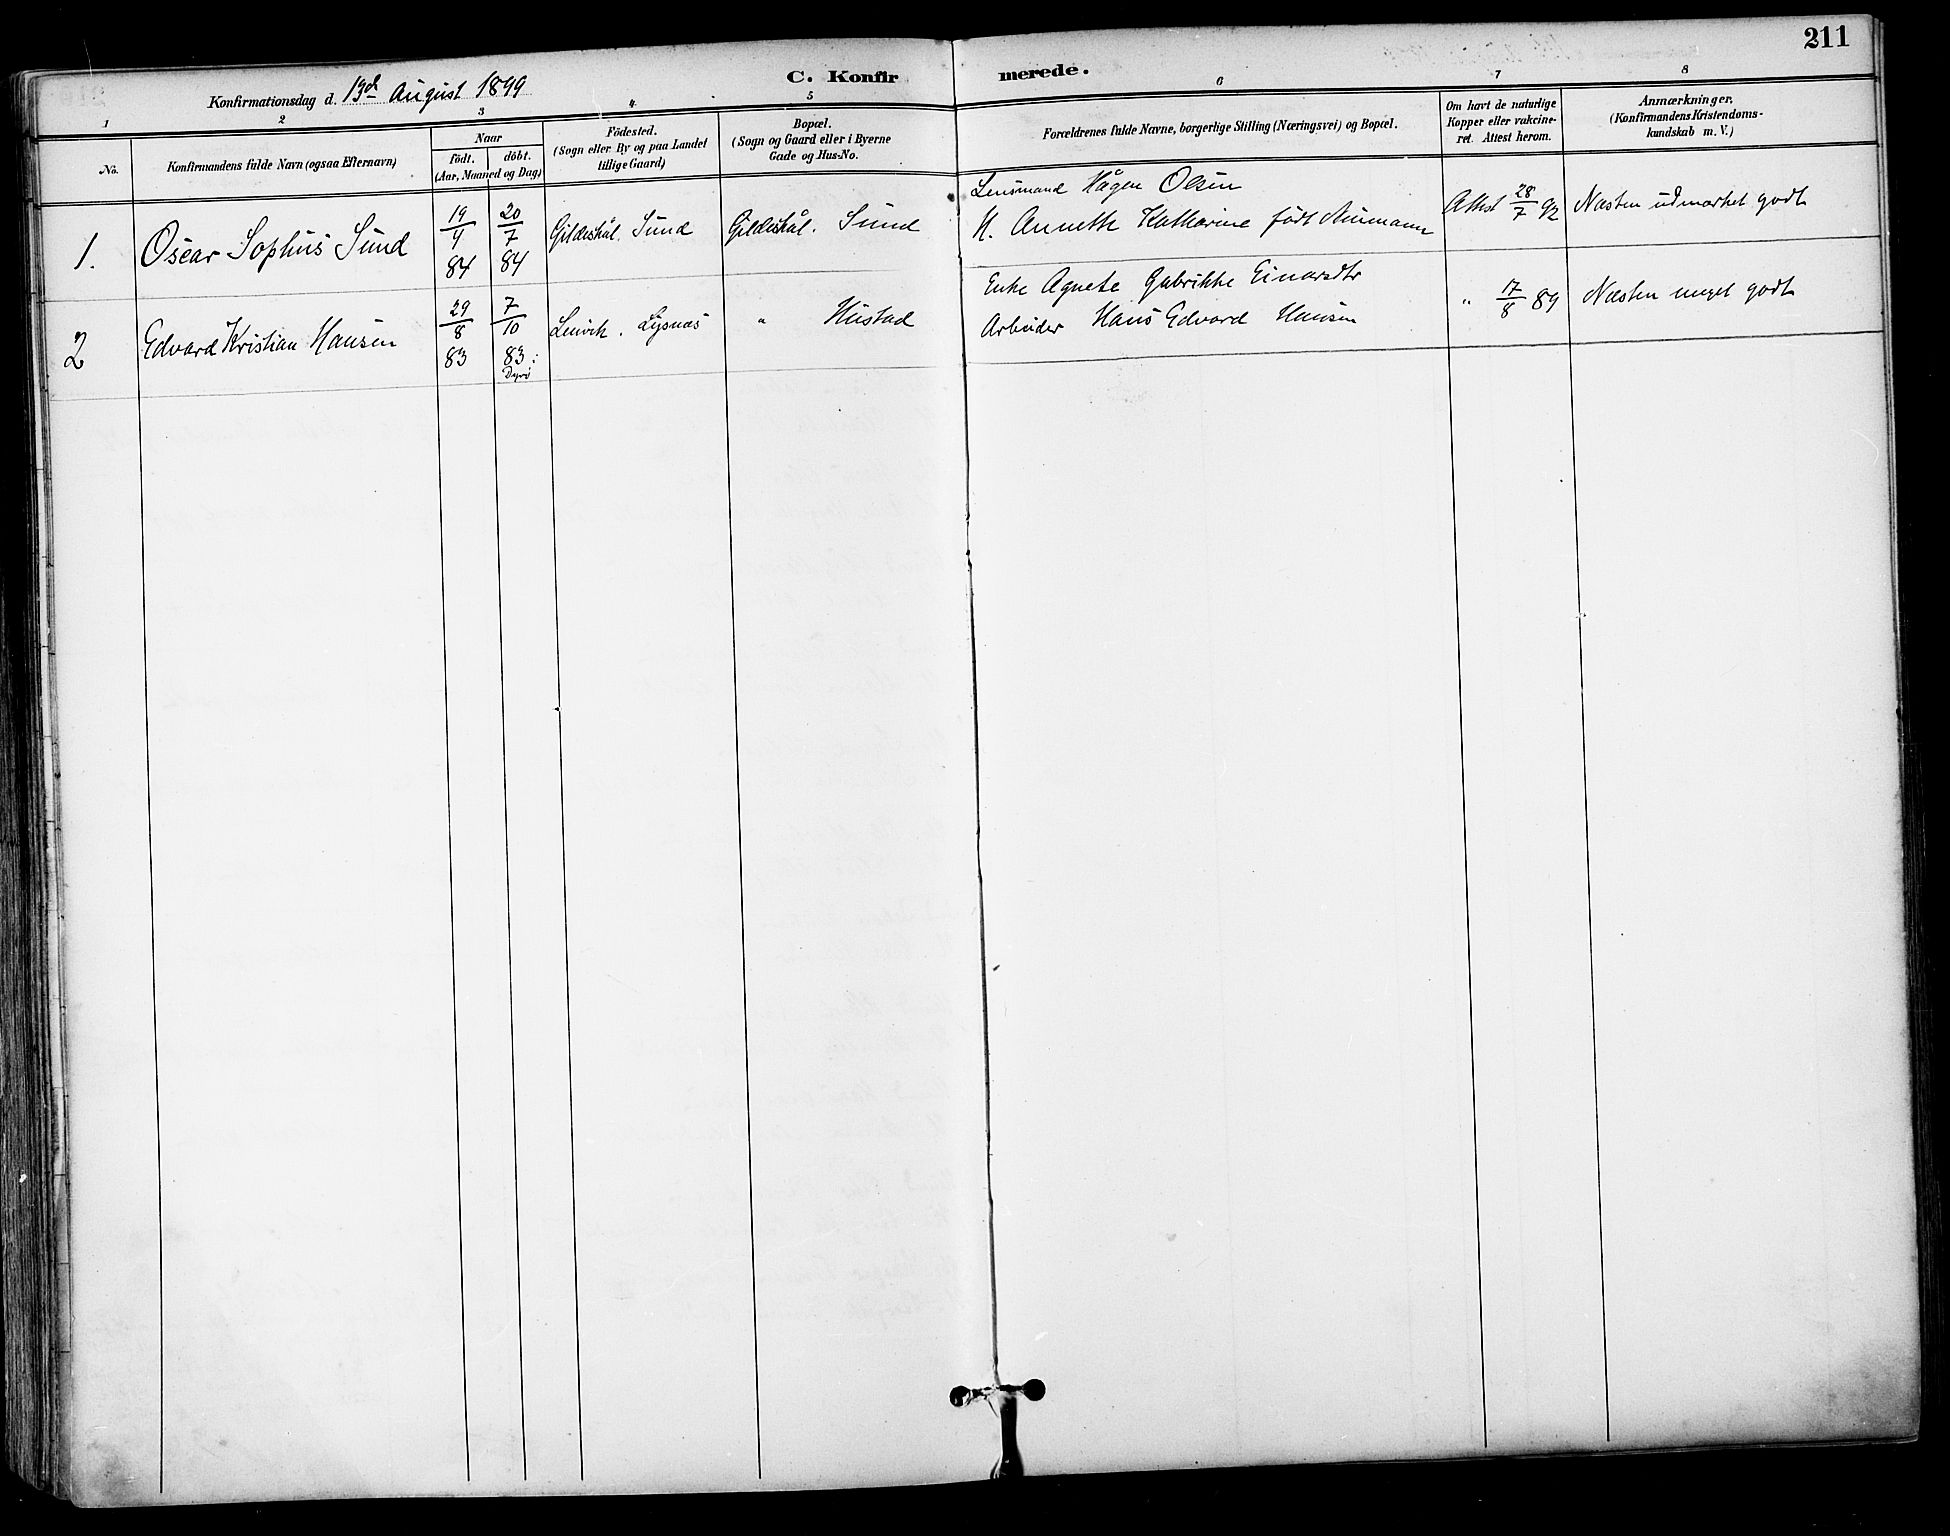 211
Konfirmationsdag d. 13de August 1899
C. Konfirmerede.
1 2 3 4 5 6 7 8
No.
Konfirmandens fulde Navn (ogsaa Efternavn)
Naar
født. døbt.
(Aar, Maaned og Dag)
Fødested.
(Sogn eller By og paa Landet
tillige Gaard)
Bopæl.
(Sogn og Gaard eller i Byerne
Gade og Hus-No.
Forældrenes fulde Navne, borgerlige Stilling (Næringsvei) og Bopæl.
Om havt de naturlige
Kopper eller vakcine-
ret. Attest herom.
Anmærkninger.
(Konfirmandens Kristendoms-
kundskab m. V.)
1. Oscar Sophus Sund
19/4 84
20/7 84
Gildeskål. Sund
Gildeskål. Sund
Lensmand Hågen Olsen
H. Anneth Katharine født Aumann
Attest 28/7 92
Næsten udmærket godt
2 Edvard Kristian Hansen
29/8 83
7/10 83:
Lenvik. Lysnæs
" Hustad
Enke Agnete Gubrikke Einarsdtr
Arbeider Hans Edvard Hansen
" 17/8 89
Næsten meget godt